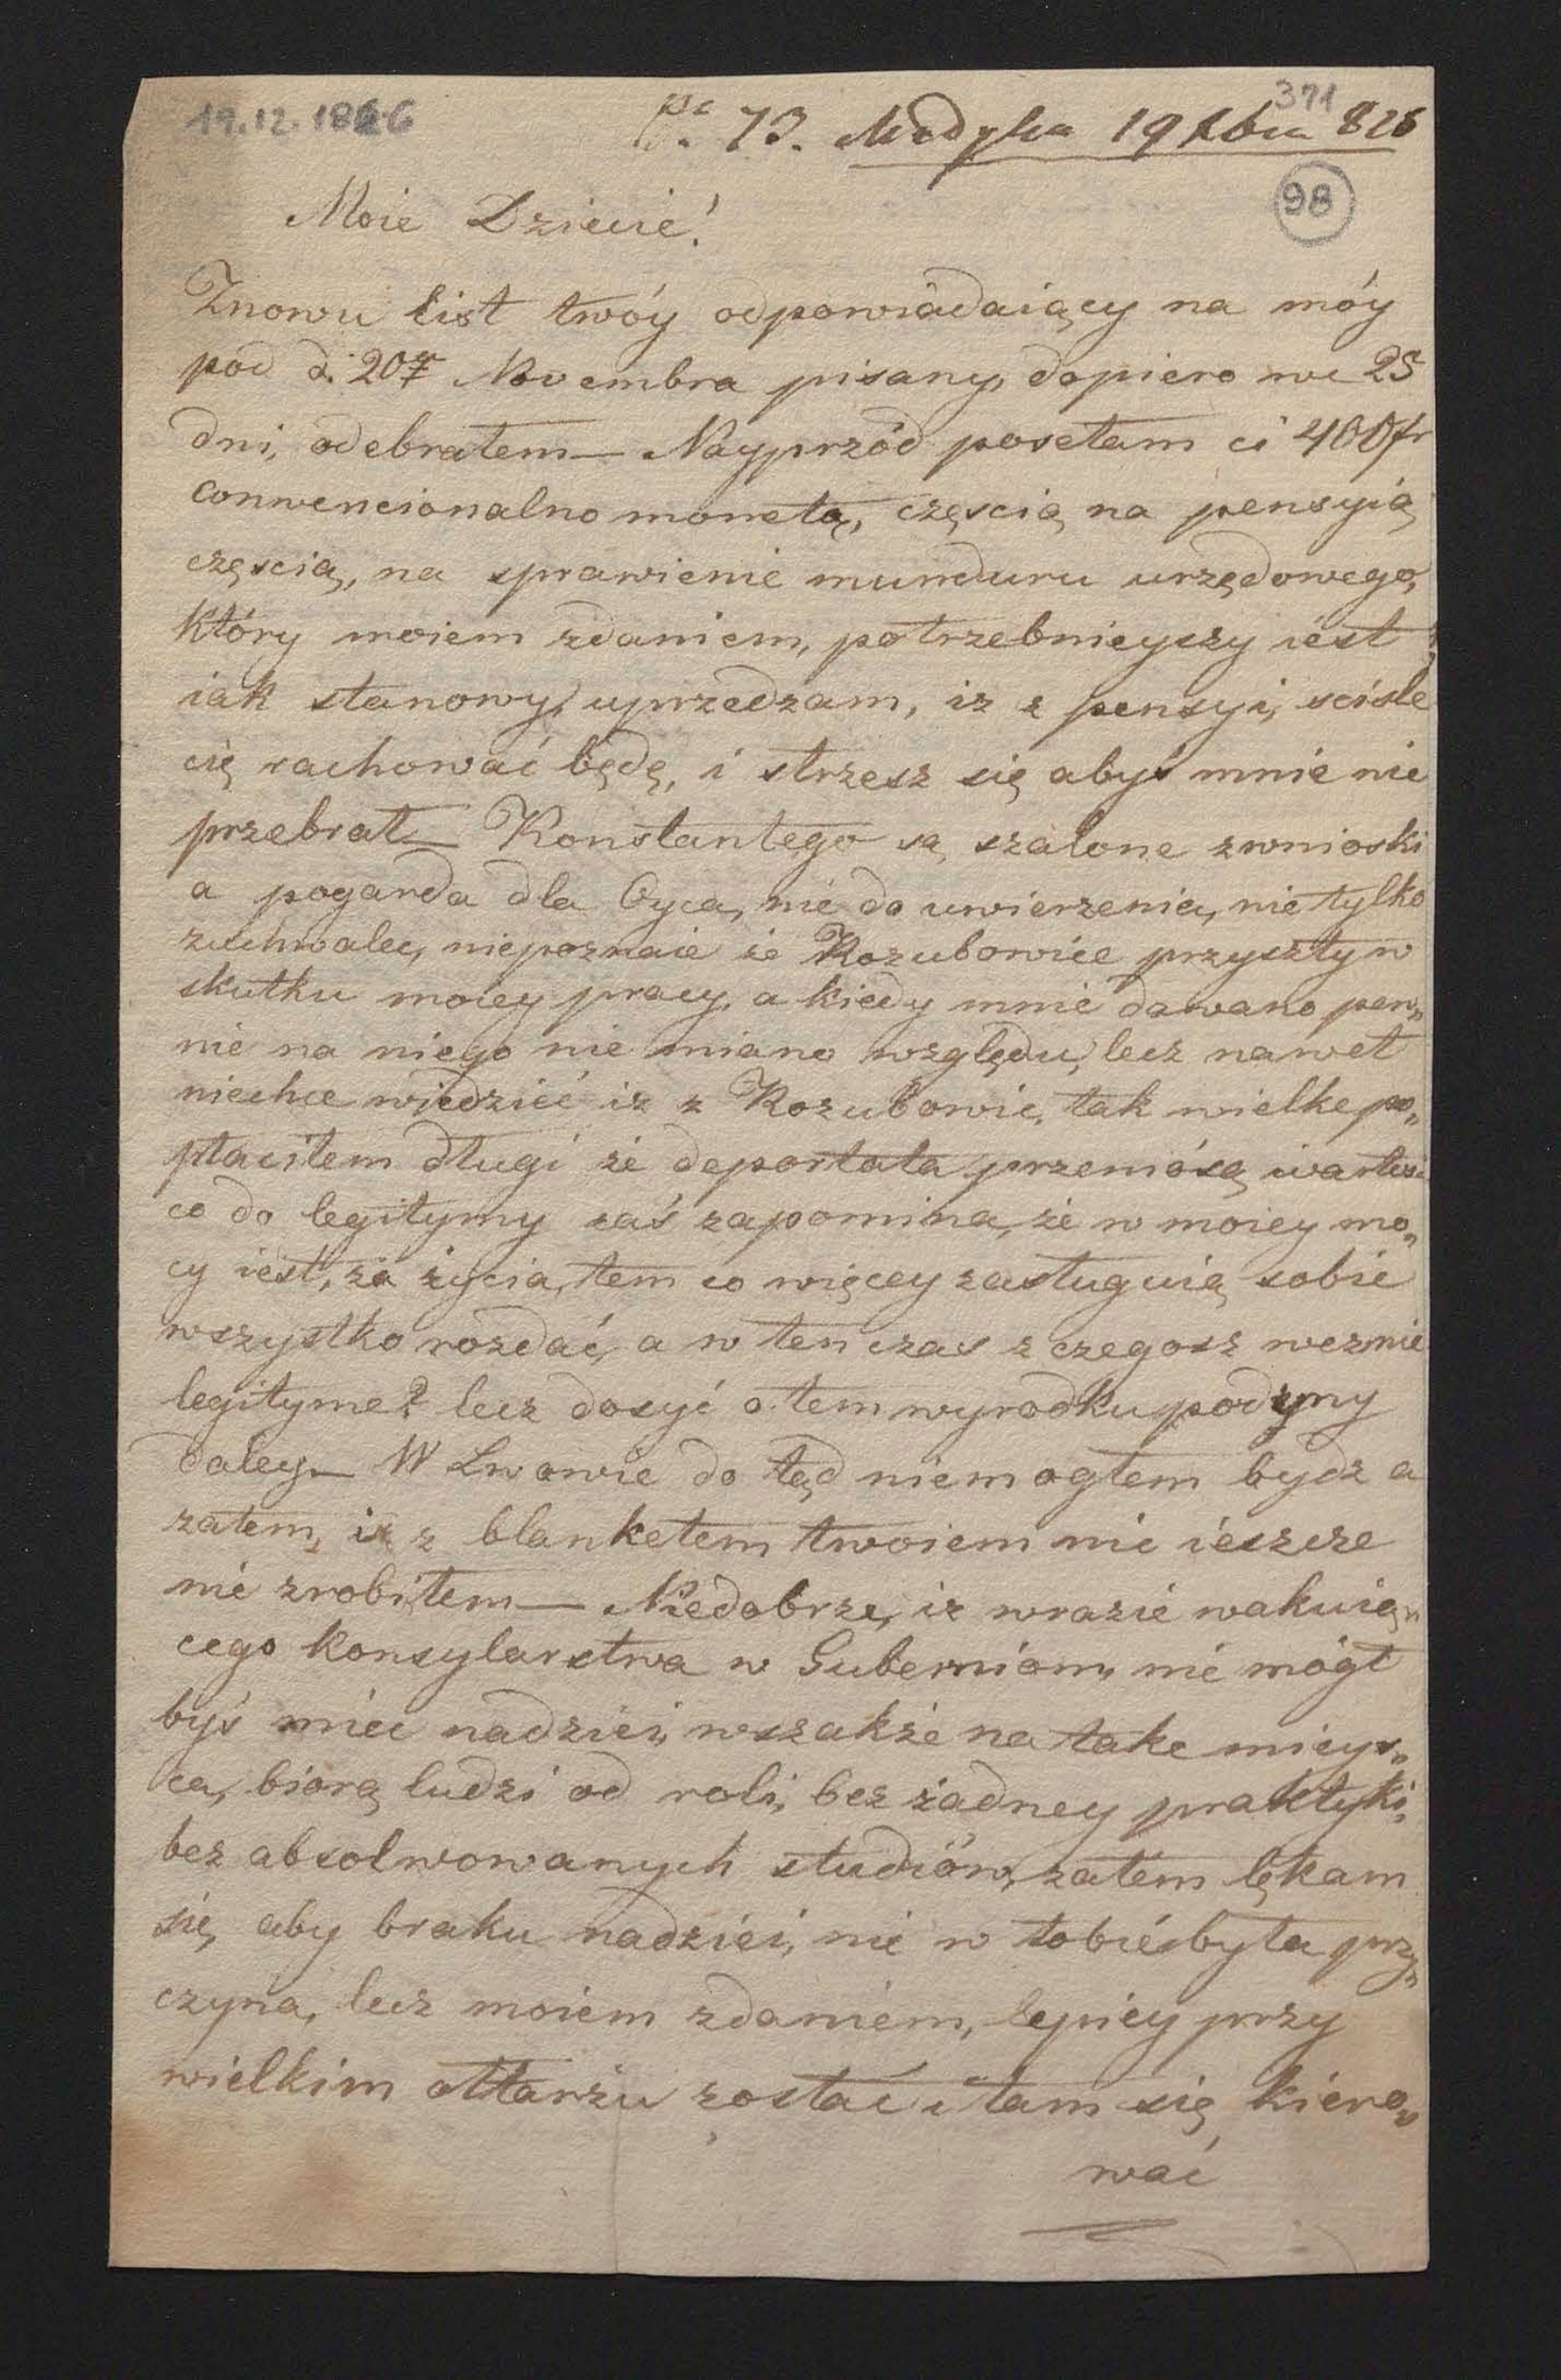 19.12.1826
371
73. Medyka 19 Xbra 826
98
Moie Dziecie!
Znowu list twóy odpowiadaiący na móy
pod d. 20 Novembra pisany, dopiero we 25
dni, odebrałem — Nayprzód posełam ci 400 fr
conwencionalno monetą, częscią na pensyią
częscią, na sprawienie munduru urzędowego,
który moiem zdaniem, potrzebnieyszy iest
iak stanowy, uprzedzam, iz z pensyi, scisle
cię rachować będę, i strzesz się abyś mnie nie
przebrał — Konstantego są szalone zwnioski
a pogarda dla Oyca, nie do uwierzenia, nie tylko
zuchwalec, niepoznaie że Kozubowice przyszły w
skutku moiey pracy, a kiedy mnie dawano pew„
nie na niego nie miano względu, lecz nawet
niechce wiedzieć iz z Kozubowic, tak wielke po„
płaciłem długi że deportata przeniósą wartos
co do legitymy zaś zapomina, że w moiey mo„
cy iest, za życia, tem co więcey zasługuią sobie
wszystko rozdać, a w ten czas z czegosz wezmie
legityme? lecz dosyć o tem wyrodku podzmy
daley — W Lwowie do tąd niemogłem bydz a
zatem, iz z blanketem twoiem nic ieszcze
nie zrobiłem — Niedobrze, iz wrazie wakuią„
cego konsylarstwa w Guberniom, nie mógł
byś miec nadziei, wszakże na take mieys„
ca, biorą ludzi od roli, bez żadney praktyki,
bez absolwowanych studiów, zatem lękam
się, aby braku nadziei, nie w tobie była przy„
czyna, lecz moiem zdaniem, lepiey przy
wielkim ołtarzu zostać i tam się kiero„
wać